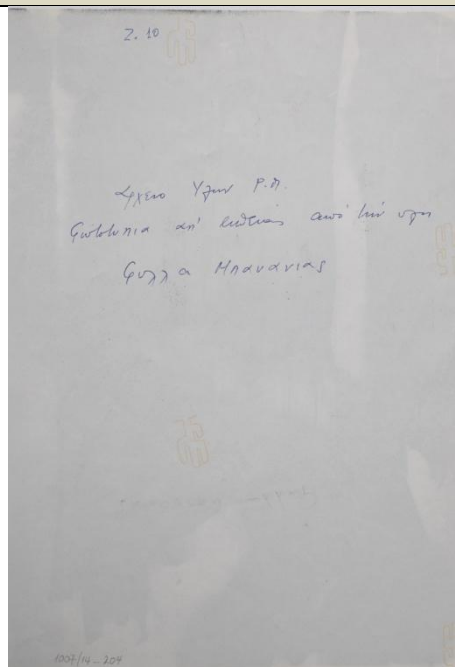 2. 10
Αρχειο Υλων Ρ.Π.
Φωτοτυπια απ' ευθειας από την υλη
Φυλλα Μπανανιας
1007/14_204